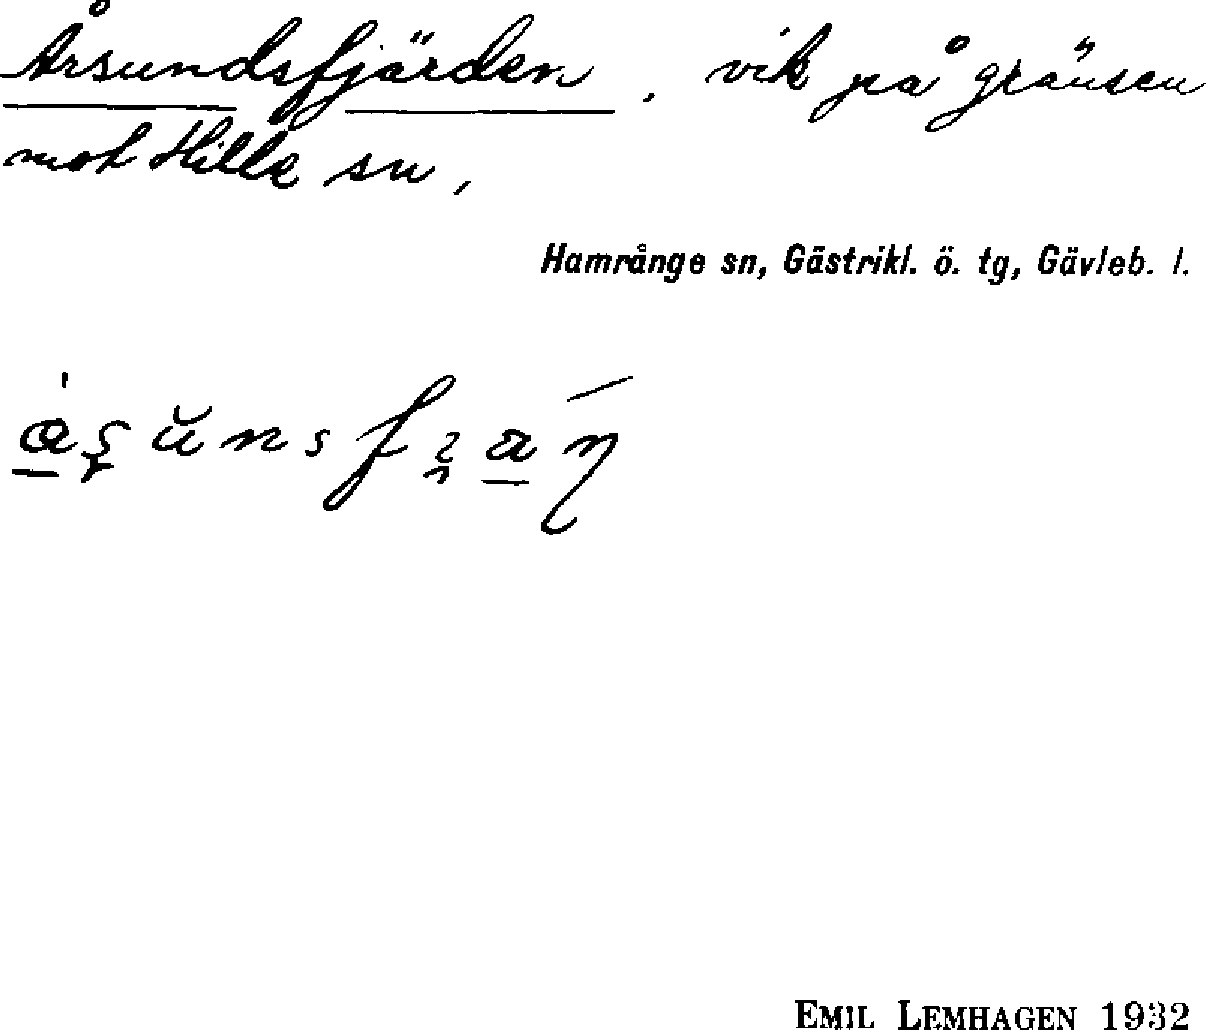 Årsundsfjärden, vik på gränsen
mot Hille sn,
Hamrånge sn, Gästrikl. ö. tg, Gävleb. l.
EMIL LEMHAGEN 1932